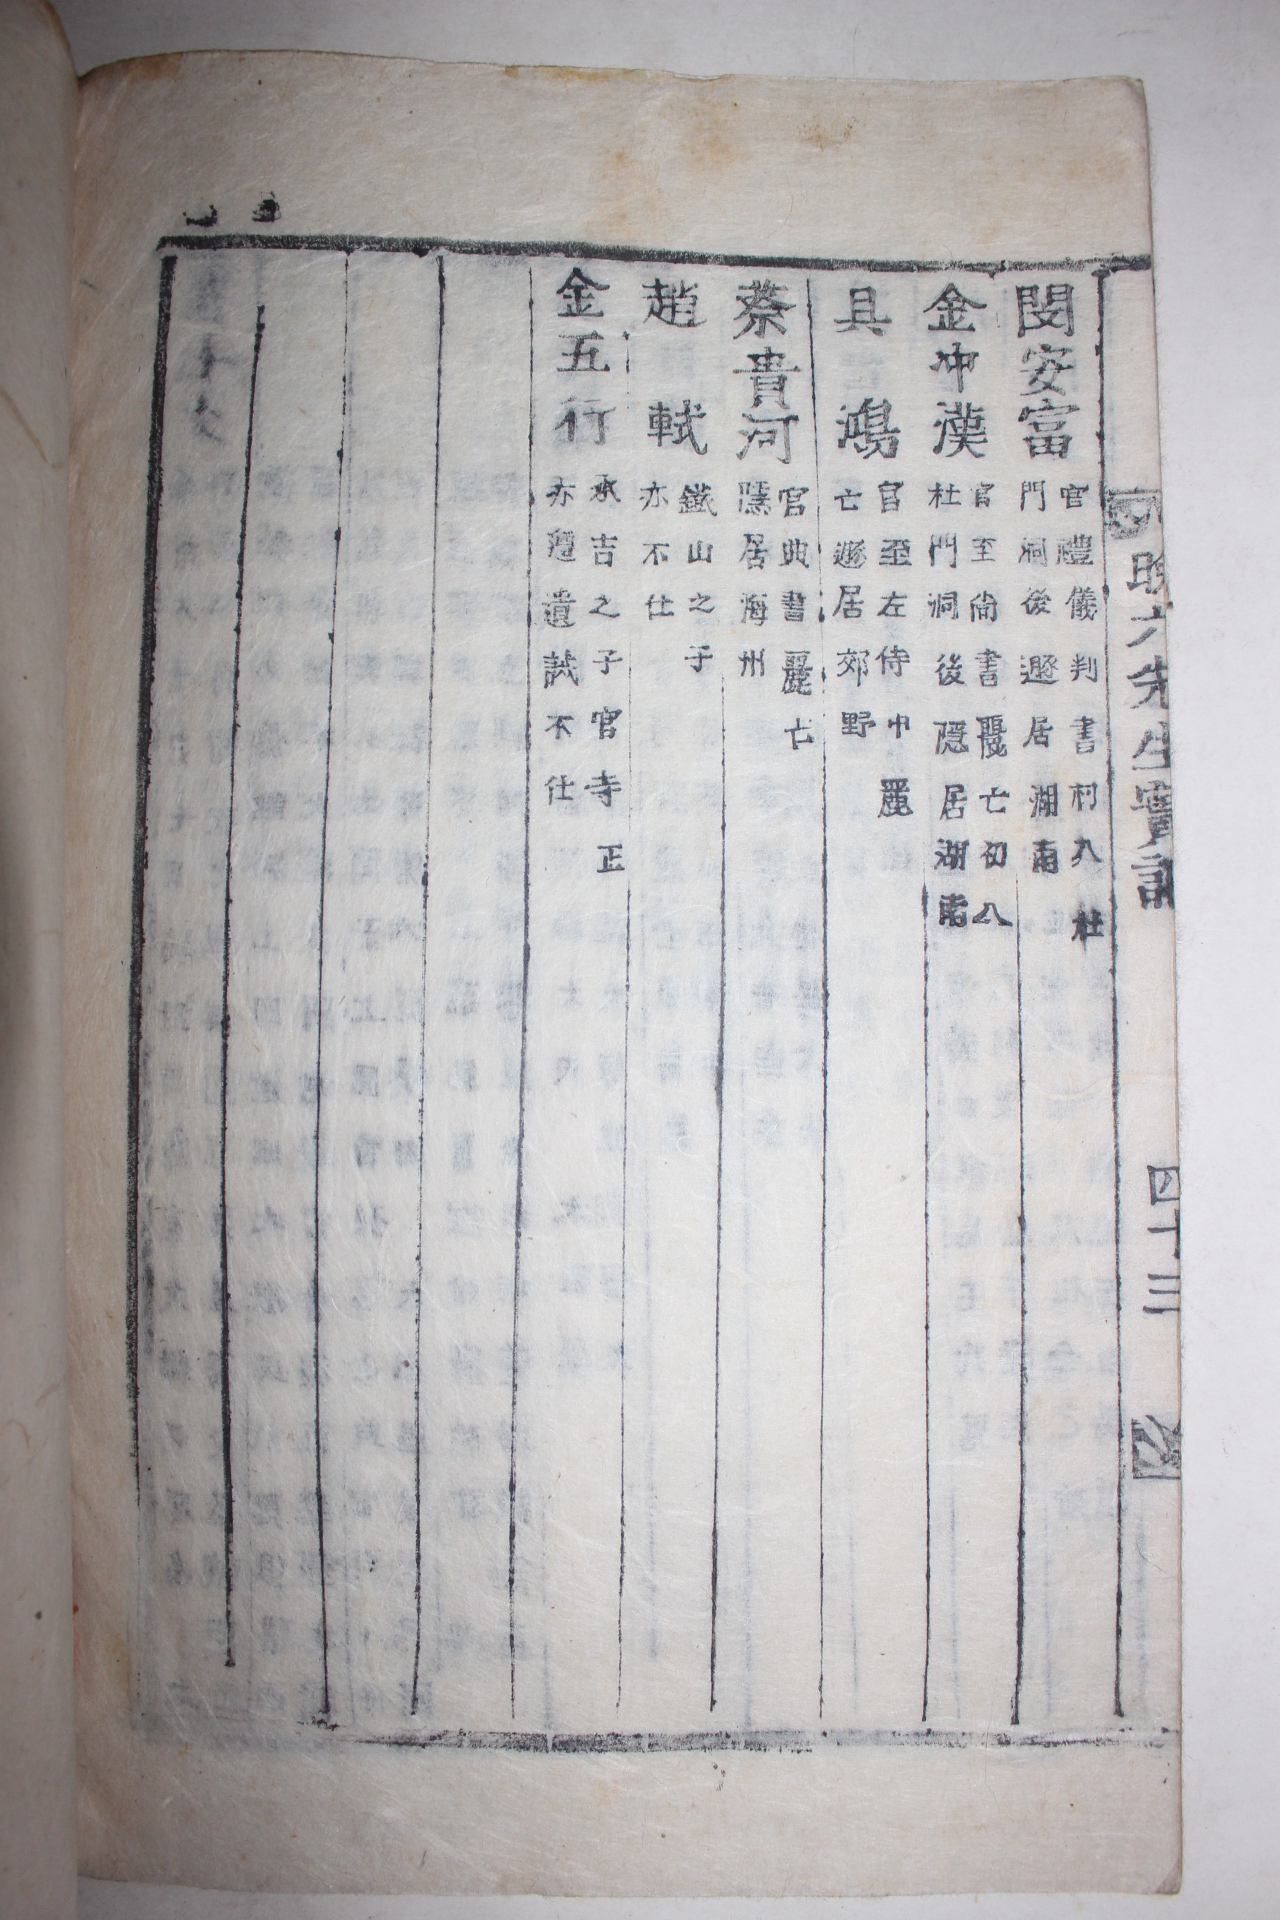 晚六先生實記
四十三
閔安富
官禮儀判書初入杜
門洞後遯居湖南
金冲漢
官至尙書麗亡初入
杜門洞後隱居湖南
具鴻
官至左侍中麗
亡遯居郊野
蔡貴河
官典書麗亡
隱居海州
趙軾
鐵山之子
亦不仕
金五行
承吉之子官寺正
亦遵遺誡不仕